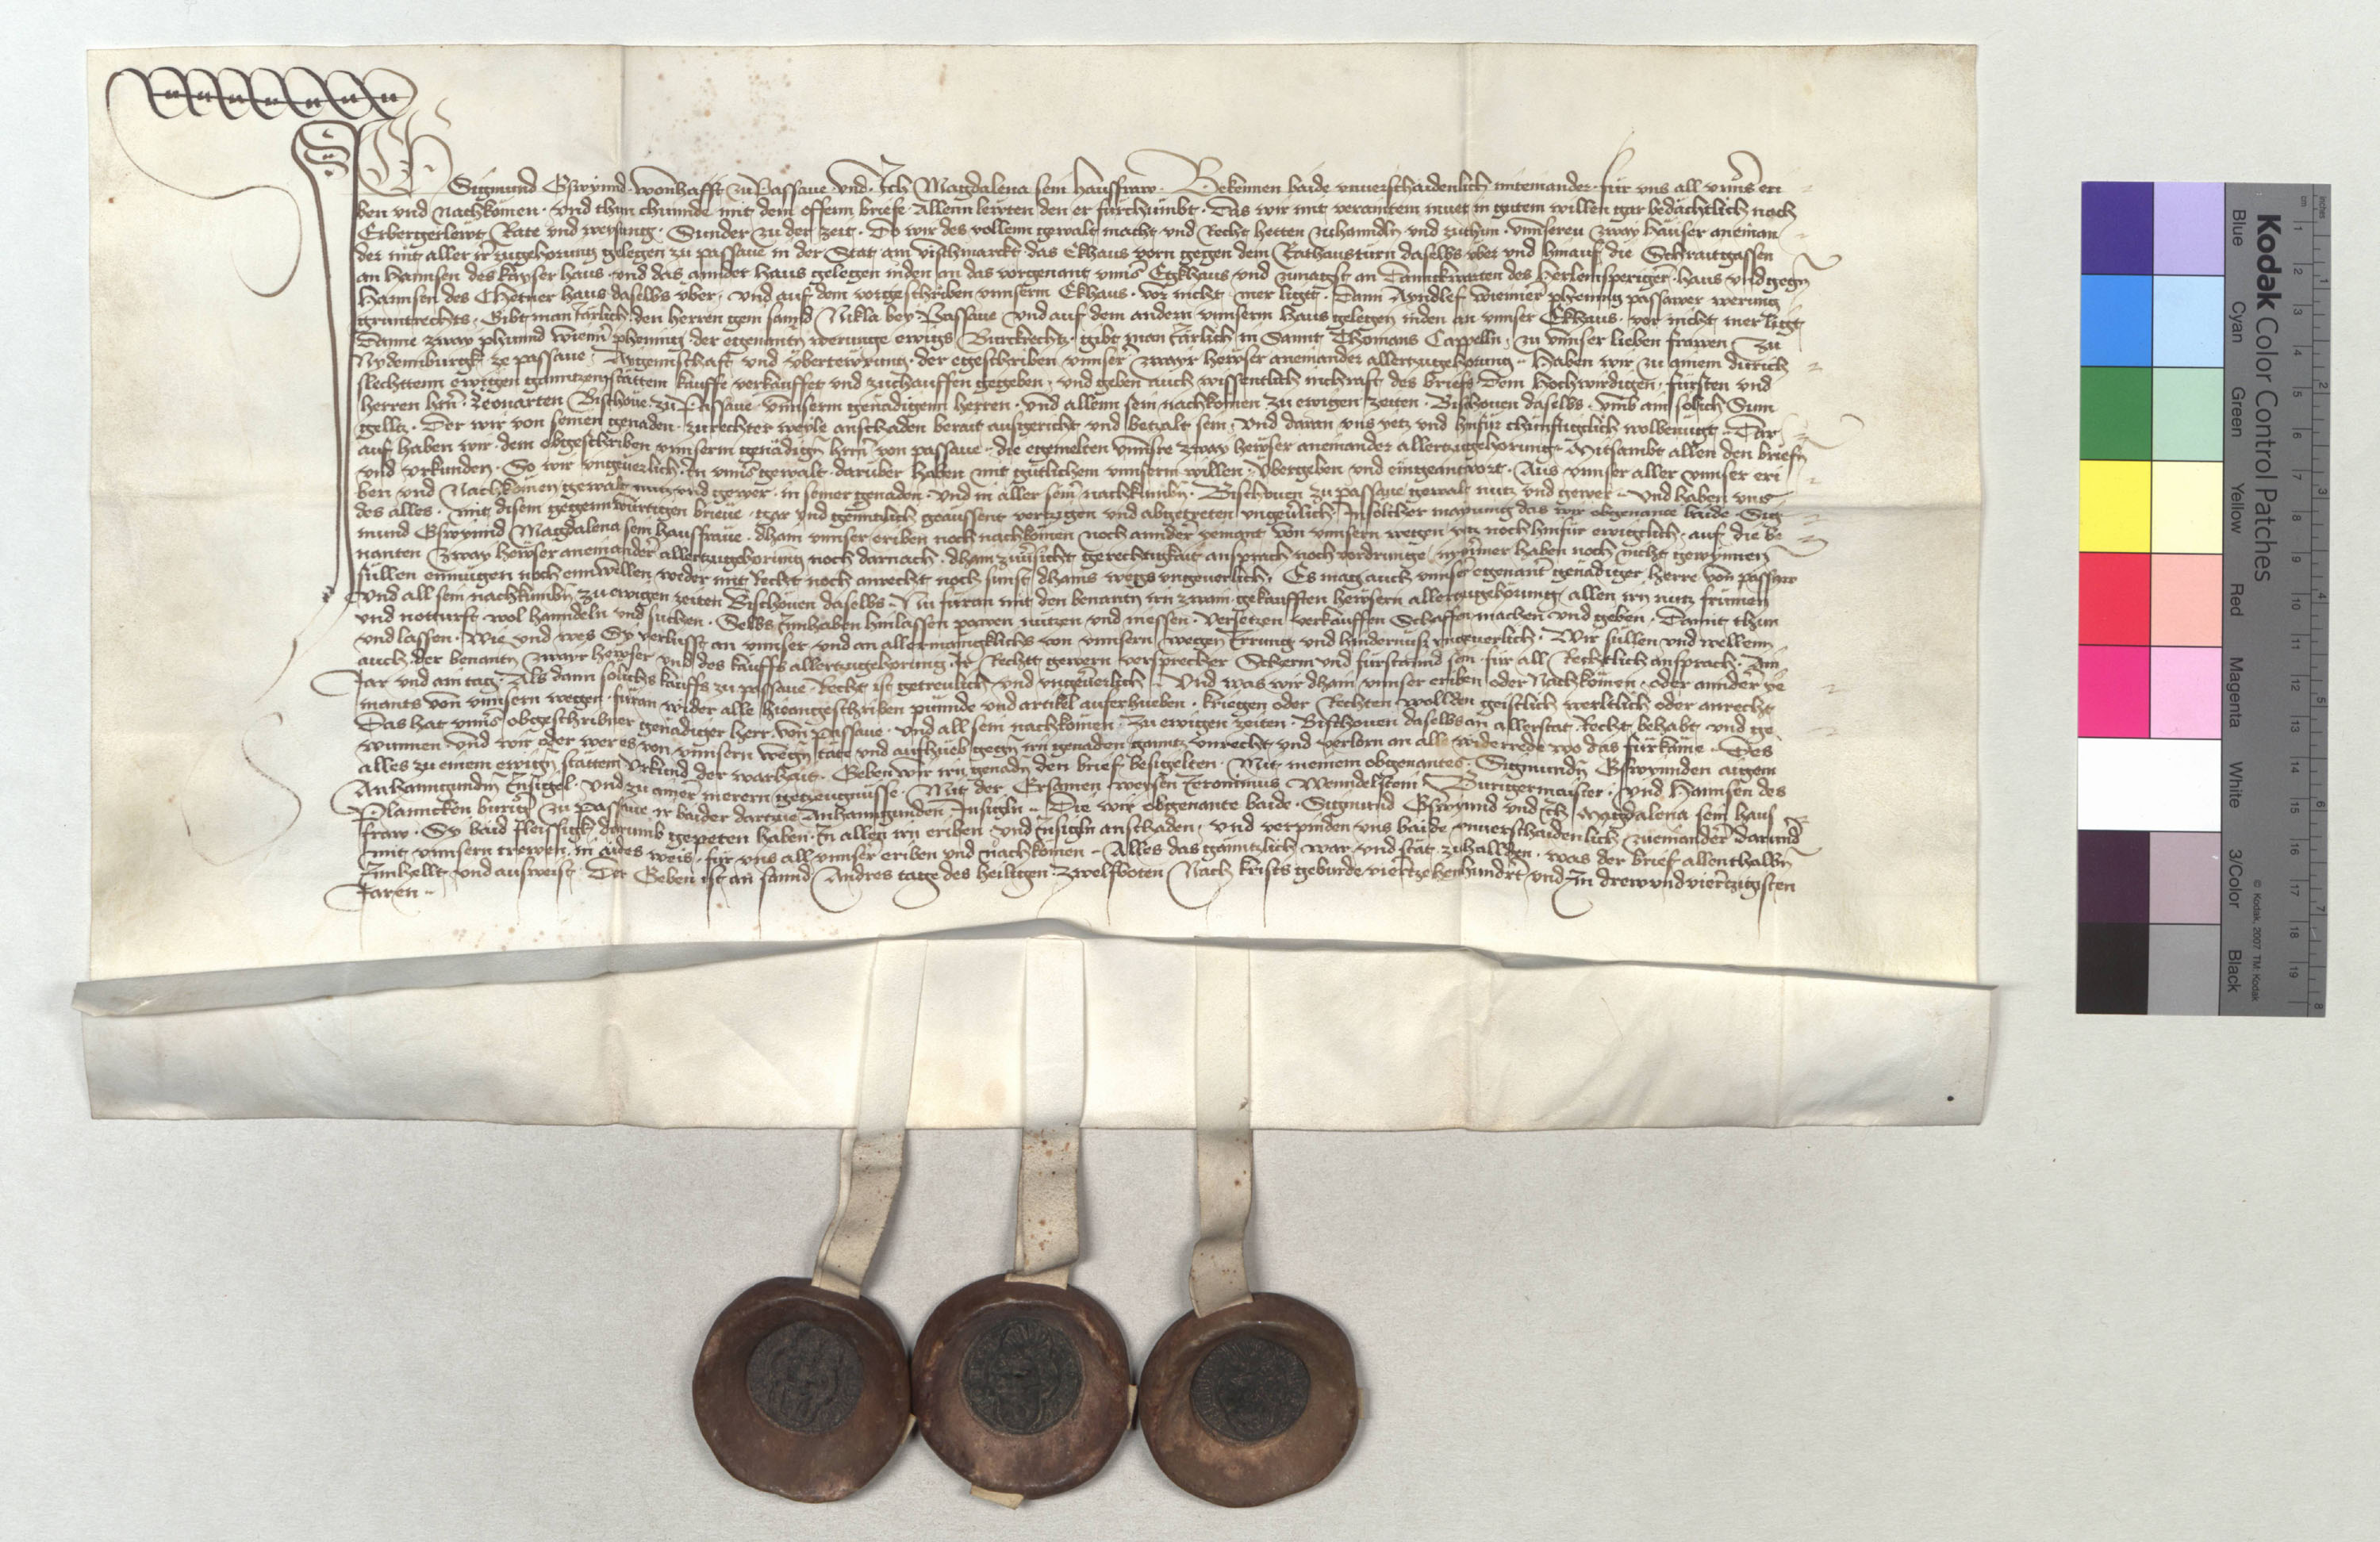 ICH Sigmund Gswynnd wonhafft zu Passaue vnd Ich Magdalena sein hausfraw Bekennen baide vnuerschaidenlich miteinander fur vns all vnnser eri
ben vnd nachkomen vnd thun chunnde mit dem offenn briefe Allenn lewten den er furchumbt Das wir mit veraintem muet in gutem willen gar bedachtlich nach
Erbergerlewt Rate vnd weysung Sunder zu der zeit Do wir des vollenn gewalt macht vnd Recht hetten zuhanndln vnd zuthun vnnseren zway hauser aneinan
der mit aller ir zugehorung gelegen zu passaue in der Stat am vischmarckt das Ekhaus vorn gegen dem Rathausturn daselbs vber vnd hinauf die Schrautgassen
an Hannsen des kayser haus vnd das annder haus gelegen inden an das vorgenant vnnser Egkhaus vnd zunagst an Dannckwarten des Herleinsperiger haus vnd gegn
Hannsen des Chetner haus daselbs vber vnd auf dem vorgeschriben vnnserm Ekhaus vor nicht mer ligt Dann Ayndlef wienner phening passawer werung
gruntrechts Gibt man Iarlich den herren gen sannd Nikla bey Passaue vnd auf dem andern vnnserm haus gelegen inden an vnnser Ekhaus vor nicht mer ligt
Danne zway phunnd wienner phening der egenanten werunge ewigs Burckrechtz gibt man Iarlich in Sannt Thomans Cappelln zu vnnser lieben frawen zu
Nydernburgk ze passaue Aygennschaft vnd vbertewrung der egeschriben vnnser zwayr hewser aneinander allerzugehorung Haben wir zu ainem durich
slechttenn ewigen ganntzen stattem kauffe verkauffet vnd zuchauffen gegeben vnd geben auch wissentlich inchraft des briefs Dem Hochwirdigen fursten vnd
herren hern Leonarten Bischoue zu Passaue vnnserm genadigenn herren vnd allenn sein nachkomen zu ewigen zeiten Bischouen daselbs vmb ain solich Sum
geltz Der wir von seinen genaden zurechter weyle anschaden berait ausgericht vnd betzalt sein vnd daran vns yetz vnd hinfur chunftigclich wolbenugt Dar
auf haben wir dem obgeschriben vnnserm genadigen hern von passaue die egemelten vnnsre zway hewser aneinander allerzugehorung Mitsambt allen den briefn
vnd vrkunden So wir vngeuerlich In vnnser gewalt daruber haben mit gutlichem vnnserm willen Vbergeben vnd eingeantwort Aus vnnser aller vnnser eri
ben vnd Nachkomen gewalt nutz vnd gewer in seiner genaden vnd in aller seiner nachkumbn Bischouen zu passaue gewalt nutz vnd gewer vnd haben vns
des alles mit disem gegennwurtigen brieue gar vnd genntzlich geaussent vertzigen vnd abgetreten vngeuerlich In solcher maynung das wir obgenante baide Sig
mund Gswynnd Magdalena sein hausfraue dhain vnnser eriben noch nachkomen noch annder yemant von vnnsern wegen ytz noch hinfur ewigclich auf die be
nanten zway hewser aneinander allerzugehorung noch darnach dhain zuuersicht gerechtigkait ansprach noch vordrunge nymmer haben noch nicht gewynnen
sullen enmugen noch ennwellen weder mit Recht noch anrecht noch sunst dhains wegs vngeuerlich Es mag auch vnnser egenanter genadiger herre von passaw
vnd all sein nachkumbn zu ewigen zeiten Bischouen daselbs Nu furan mit den benanten irn zwain gekaufften hewsern allerzugehorung allen irn nutz frumen
vnd notturft wol hanndeln vnd suchen Selbs Innhaben hinlassen pawen nutzen vnd niessen Versetzen verkauffen Schaffen machen vnd geben Damit thun
vnd lassen Wie vnd wes Sy verlusst an vnnser vnd an allermanigklichs von vnnsern wegen Irrung vnd hindernusz vngeuerlich Wir sullen vnd wellenn
auch der benanten zwayr hewser vnd des kauffs allerzugehorung Ir Rechtt gewern versprecher Scherm vnd furstannd sein fur all Rechtlich ansprach Ain
Iar vnd ain tag Als dann solichs kauffs zu passaue Recht ist getreulich vnd vngeuerlich Vnd was wir dhain vnnser eriben oder Nachkomen oder annder ye
mants von vnnsern wegen furan wider alle hieangeschriben punnde vnd artikel auferhueben kriegen oder Rechten wollden geistlich werltlich oder anrecht
Das hat vnnser obgeschribner genadiger herr von Passaue vnd all sein nachkomen zu ewigen zeiten Bischouen daselbs an allerstat Recht behabt vnd ge
wunnen vnd wir oder wer es von vnnsern wegn tate vnd aufhueb gegn irn genaden ganntz vnrecht vnd verlorn an alle widerrede wo das furkame Des
alles zu einem ewign stattem vrkund der warhait Geben wir irn genadn den brief besigelten Mit meinem obgenantes Sigmundn Gswynnden aigem
Anhanngundm Innsigel Vnd zu ainer merern getzeugnusse Mit der Ersamen weysen Ieronimus Wenndelstein Burigermaister Vnd Hannsen des
Planncken burger zu Passaue ir baider dartzue Anhanngunden Insigln Die wir obgenante baide Sigmund Gswynnd vnd ich Magdalena sein haus
fraw Sy baid fleissigk darumb gepeten haben In allen irn eriben vnd Insigln anschaden vnd verpinden vns baide vnuerschaidenlich zueinander darunder
mit vnnsern trewen in aides weis fur vns all vnnser eriben vnd nachkomen Alles das ganntzlich war vnd stat zuhallden was der brief allenthalbn
Innhellt vnd ausweist Der Geben ist an sannd Andres tage des heiligen Zwelfboten Nach krists geburde viertzehenhundert vnd In drewvndviertzigsten
Iaren
Kodak Color Control Patches
Blue Cyan Green Yellow Red Magenta White 3/Color Black
© Kodak, 2007 TM: Kodak
inches 1 2 3 4 5 6 7 8
cm 1 2 3 4 5 6 7 8 9 10 11 12 13 14 15 16 17 18 19